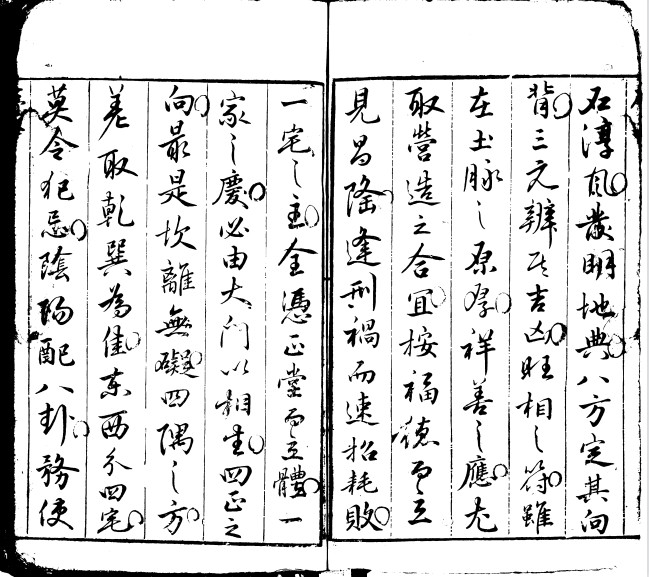 石淳風發明地典八方定其向
背三元辨其吉凶旺相之符雖
在土脉之原孚祥善之應尤
取營造之合宜按福德而立
見昌隆逢刑禍而速招耗敗
一宅之主全憑正堂而立體一
家之慶必由大門以相生四正之
向最是坎離無礙四隅之方
差取乾巽為佳東西分四宅
莫令犯忌陰陽配八卦務使